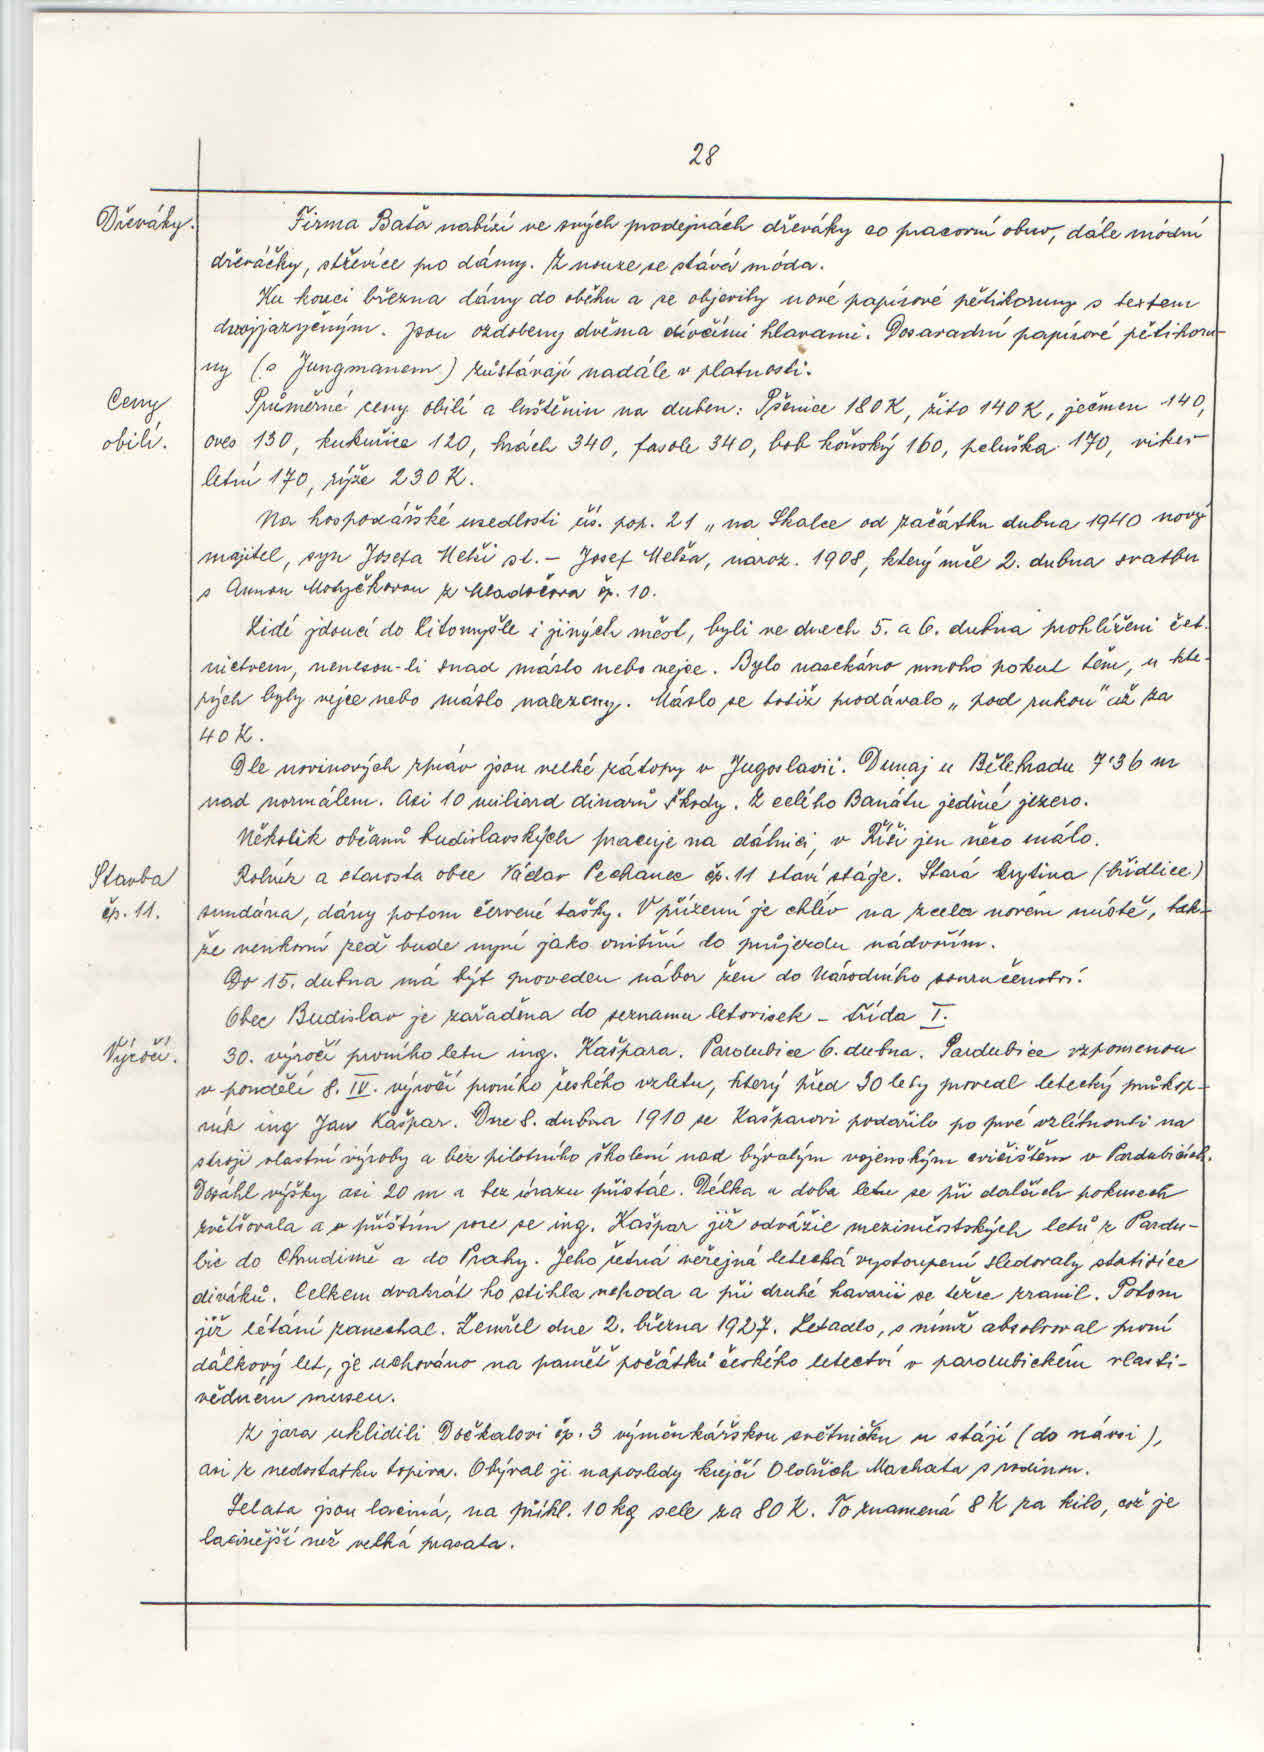 28
Dřeváky.
Firma Baťa nabízí ve svých prodejnách dřeváky co pracovní obuv, dále módní
dřeváčky, střevíce pro dámy. Z nouze se stává móda.
Ku konci března dány do oběhu a se objevily nové papírové pětikoruny s textem
dvojjazyčným. Jsou ozdobeny dvěma dívčími hlavami. Dosavadní papírové pětikoru-
ny (s Jungmanem) zůstávají nadále v platnosti.
Ceny
obilí.
Průměrné ceny obilí a luštěnin na duben: Pšenice 180 K, žito 140 K, ječmen 140,
oves 130, kukuřice 120, hrách 340, fasole 340, bob koňský 160, peluška 170, vikev
letní 170, rýže 230 K.
Na hospodářské usedlosti čís. pop. 21 „na Skalce od začátku dubna 1940 nový
majitel, syn Josefa Melši st. – Josef Melša, naroz. 1908, který měl 2. dubna svatbu
s Annou Motyčkovou z Mladočova čp. 10.
Lidé jdoucí do Litomyšle i jiných měst, byli ve dnech 5. a 6. dubna prohlíženi čet-
nictvem, nenesou-li snad máslo nebo vejce. Bylo nasekáno mnoho pokut těm, u kte-
rých byly vejce nebo máslo nalezeny. Máslo se totiž prodávalo „pod rukou" už za
40 K.
Dle novinových zpráv jsou velké zátopy v Jugoslavii. Dunaj u Bělehradu 7·36 m
nad normálem. Asi 10 miliard dinarů škody. Z celého Banátu jediné jezero.
Několik občanů budislavských pracuje na dálnici, v Říši jen něco málo.
Stavba
čp. 11.
Rolník a starosta obce Václav Pechanec čp. 11 staví stáje. Stará krytina (břidlice)
sundána, dány potom červené tašky. V přízemí je chlév na zcela novém místě, tak-
že venkovní zeď bude nyní jako vnitřní do průjezdu nádvořím.
Do 15. dubna má být proveden nábor žen do Národního souručenství.
Obec Budislav je zařaděna do seznamu letovisek – třída I.
Výročí.
30. výročí prvního letu ing. Kašpara. Pardubice 6. dubna. Pardubice vzpomenou
v pondělí 8. IV. výročí prvního českého vzletu, který před 30 lety provedl letecký průkop-
ník ing Jan Kašpar. Dne 8. dubna 1910 se Kašparovi podařilo po prvé vzlétnouti na
stroji vlastní výroby a bez pilotního školení nad bývalým vojenským cvičištěm v Pardubicích.
Dosáhl výšky asi 20 m a bez úrazu přistál. Délka a doba letu se při dalších pokusech
zvětšovala a v příštím roce se ing. Kašpar již odvážil meziměstských letů z Pardu-
bic do Chrudimě a do Prahy. Jeho četná veřejná letecká vystoupení sledovaly statisíce
diváků. Celkem dvakrát ho stihla nehoda a při druhé havarii se těžce zranil. Potom
již létání zanechal. Zemřel dne 2. března 1927. Letadlo, s nímž absolvoval první
dálkový let, je uchováno na paměť počátků českého letectví v pardubickém vlasti-
vědném museu.
Z jara uklidili Dočkalovi čp. 3 výměnkářskou světničku u stájí (do návsi),
asi z nedostatku topiva. Obýval ji naposledy krejčí Oldřich Machata s rodinou.
Selata jsou laciná, na příkl. 10 kg sele za 80 K. To znamená 8 K za kilo, což je
lacinější než velká prasata.